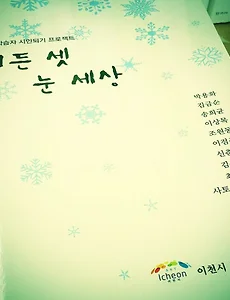 습자 시민되기 프로젝트
든 셋
눈 세상
박용화
김금순
송희균
이상복
조원동
이정
신
김
최
사토
Icheon
이천시